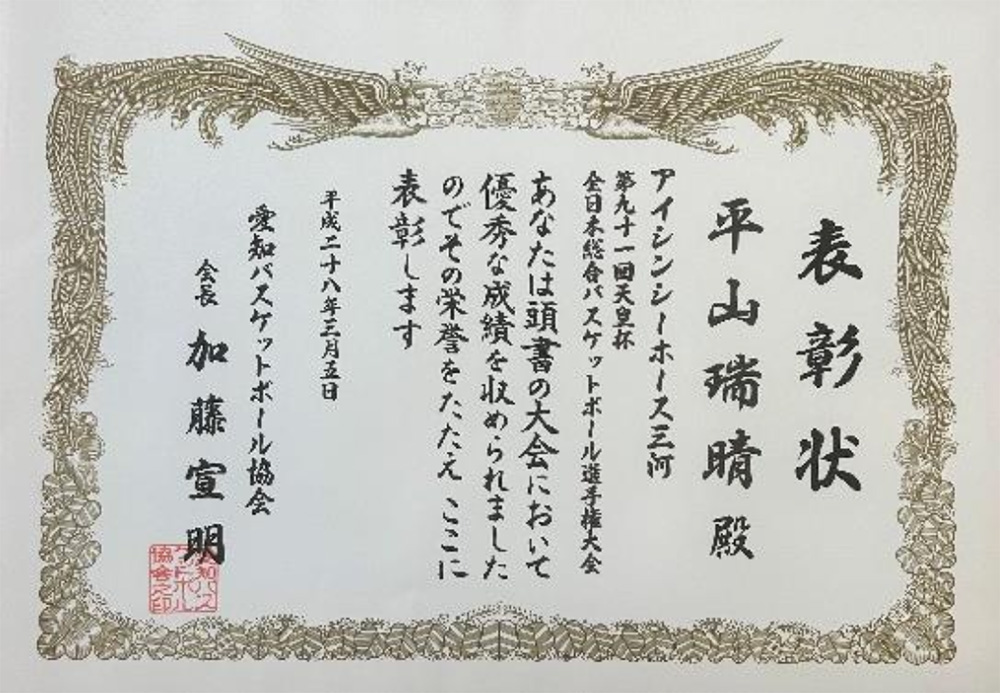 表彰状
平山瑞晴 殿
アイシンシーホース三河
第九十一回天皇杯
全日本総合バスケットボール選手権大会
あなたは頭書の大会において
優秀な成績を収められました
のでその栄誉をたたえ ここに
表彰します
平成二十八年三月五日
愛知バスケットボール協会
会長 加藤宣明
愛知バス
ケットボール
協会之印